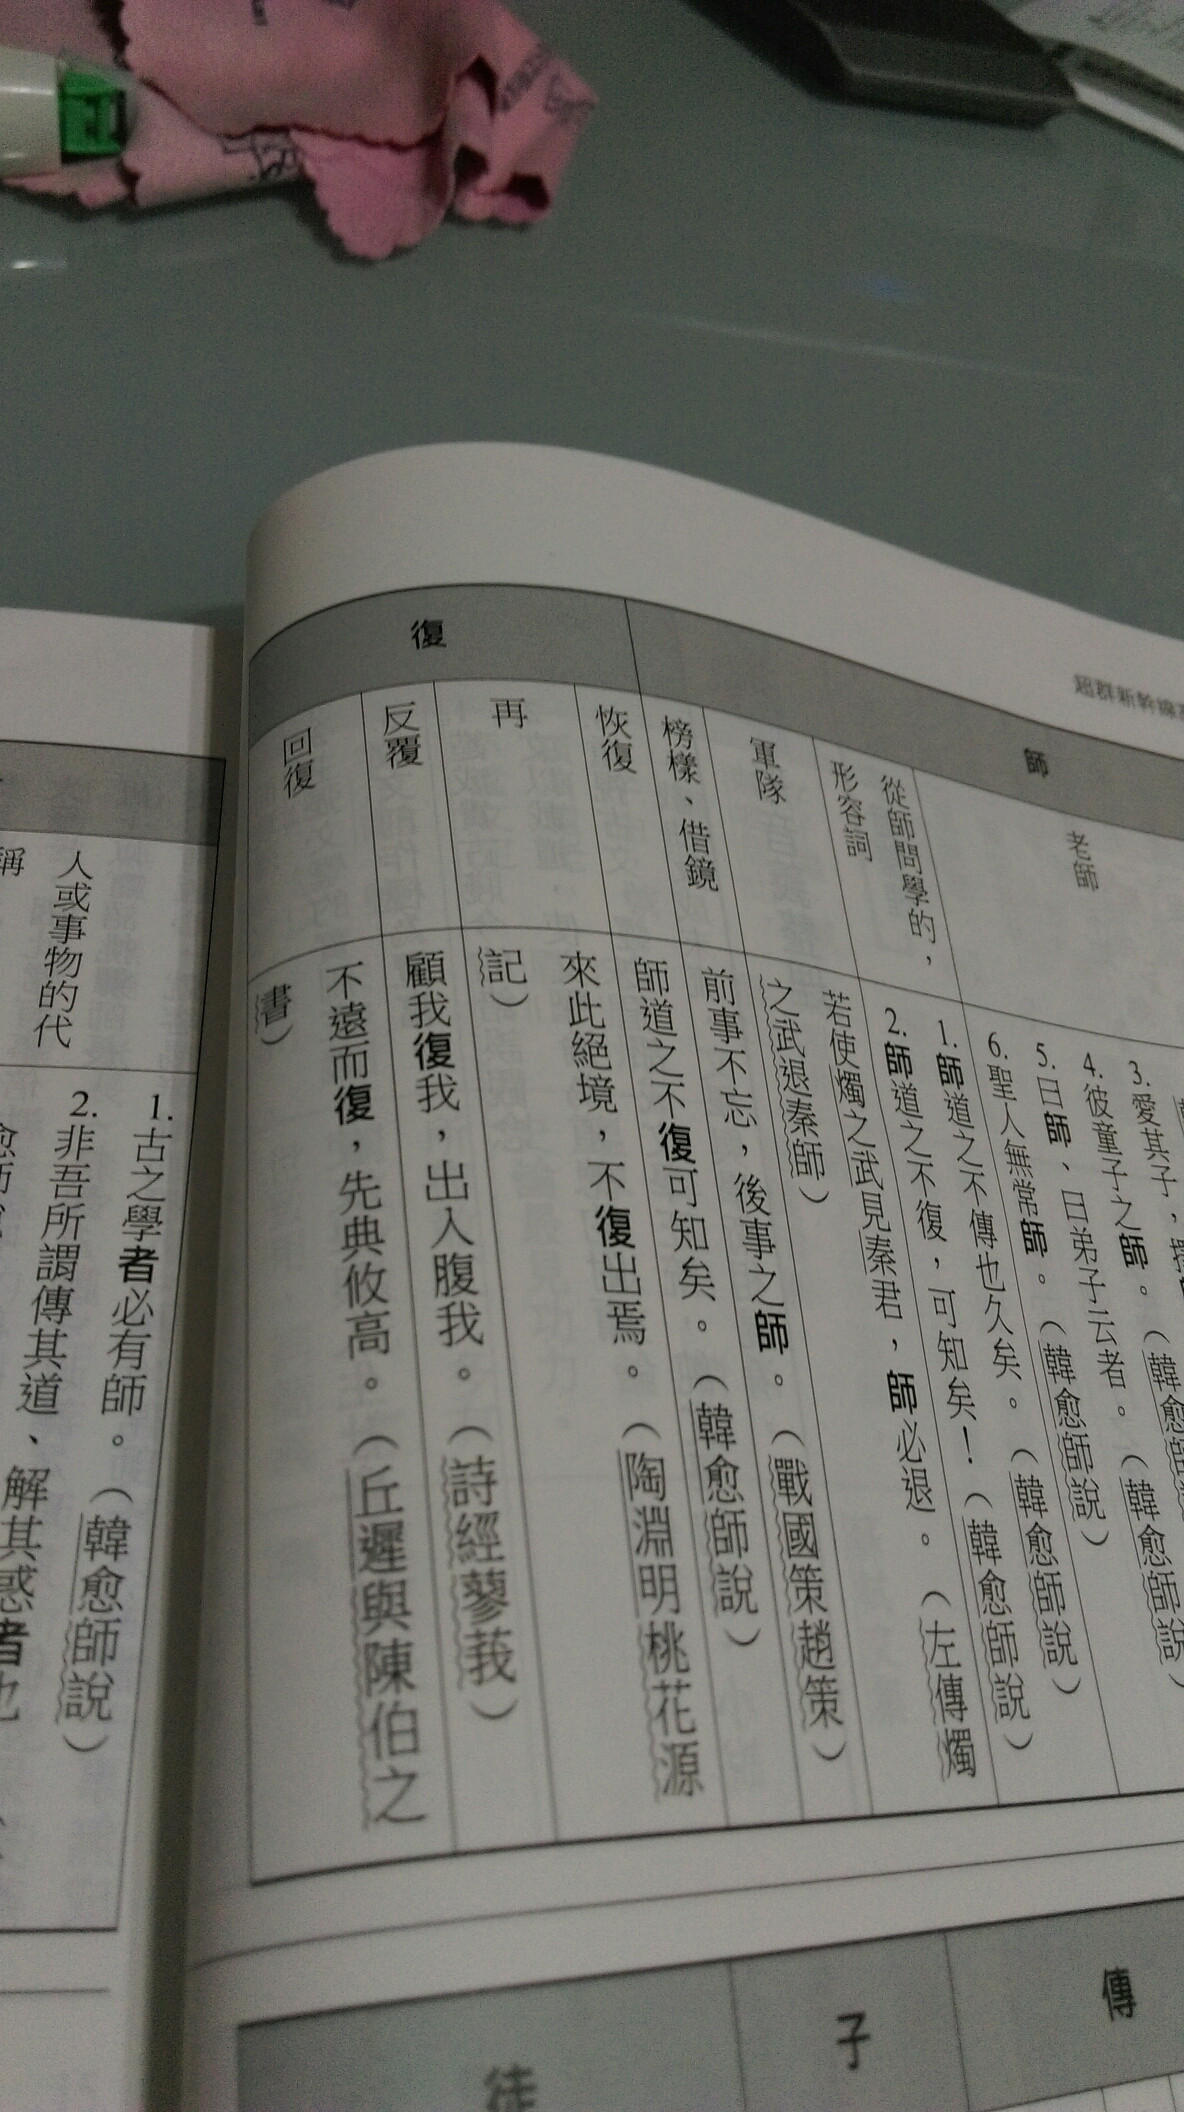 超群新幹線
師
老師
3.愛其子，擇
（韓愈師
4.彼童子之師。
（韓愈師說）
5.曰師、曰弟子云者。
（韓愈師說）
6.聖人無常師。（韓愈師說）
從師問學的，
形容詞
1.師道之不傳也久矣。（韓愈師說）
2.師道之不復，可知矣！（韓愈師說）
軍隊
若使燭之武見秦君，師必退。（左傳燭
之武退秦師）
榜樣、借鏡
前事不忘，後事之師。（戰國策趙策）
復
恢復
師道之不復可知矣。（韓愈師說）
再
來此絕境，不復出焉。（陶淵明桃花源
記）
反覆
顧我復我，出入腹我。（詩經蓼莪）
回復
不遠而復，先典攸高。（丘遲與陳伯之
書）
傳
子
徒
人或事物的代
稱
1.古之學者必有師。（韓愈師說）
2.非吾所謂傳其道、解其惑者也